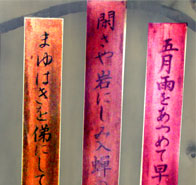 五月雨をあつめて早
閑さや岩にしみ入蝉
まゆはきを俤にして